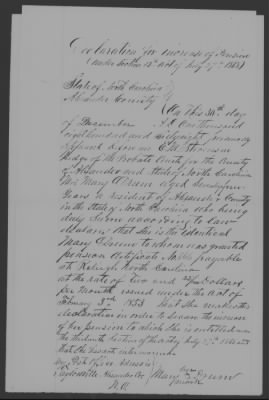 Declaration for increase of Pension
(under Section 13th Act of July 27th 1868)
State of North Carolina
Alexander County
On this 30th day
of December A D One thousand
eight hundred and sixty eight personally
appeared before me E M Stevenson
Judge of the Probate Court for the County
of Alexander and State of North Carolina
Mrs Mary Drum aged seventy five
Years a resident of Alexander County
in the State of North Carolina who being
duly sworn according to law
declares that she is the identical
Mary Drum to whom was granted
pension certificate No payable
at Raleigh North Carolina
at the rate of two and Dollars
per Month issued under the act of
February 3rd 1853 that she makes this
declaration in order to secure the increase
of her pension to which she is entitled under
the thirteenth section of the act of July 27th 1868 and
that she has not intermarried
my Post Office address is
Taylorsville Alexander Co
N.C.
Mary her X mark Drum